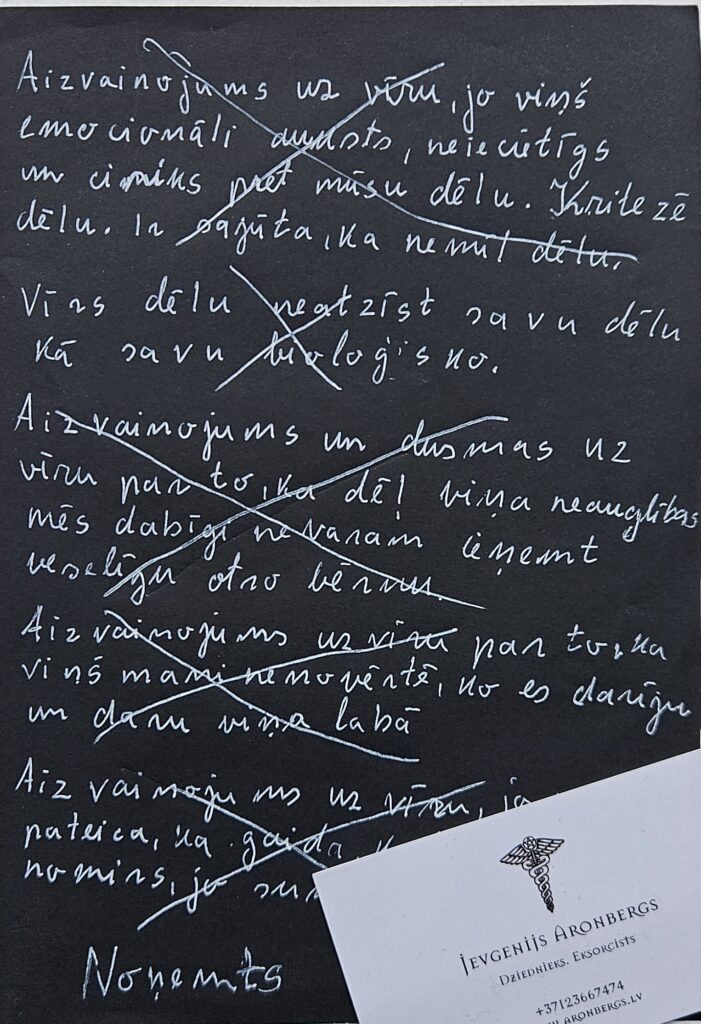 Aizvainojums uz vīru, jo viņš
emocionāli auksts, neiecietīgs
un ciniks pret mūsu dēlu. Kritezē
dēlu. Ir sajūta, ka nemīl dēlu.
Vīrs dēlu neatzīst savu dēlu
kā savu bioloģisko.
Aizvainojums un dusmas uz
vīru par to, ka dēļ viņa neauglības
mēs dabīgi nevaram ieņemt
veselīgu otro bērnu.
Aizvainojums uz vīru par to, ka
viņš mani nenovērtē, ko es darīju
un daru viņa labā
Aizvainojums uz vīru, jo
pateica, ka gaida, k
nomirs, jo
Noņemts
JEVGENIJS ARONBERGS
DZIEDNIEKS, EKSORCISTS
+37123667474
ARONBERGS.LV